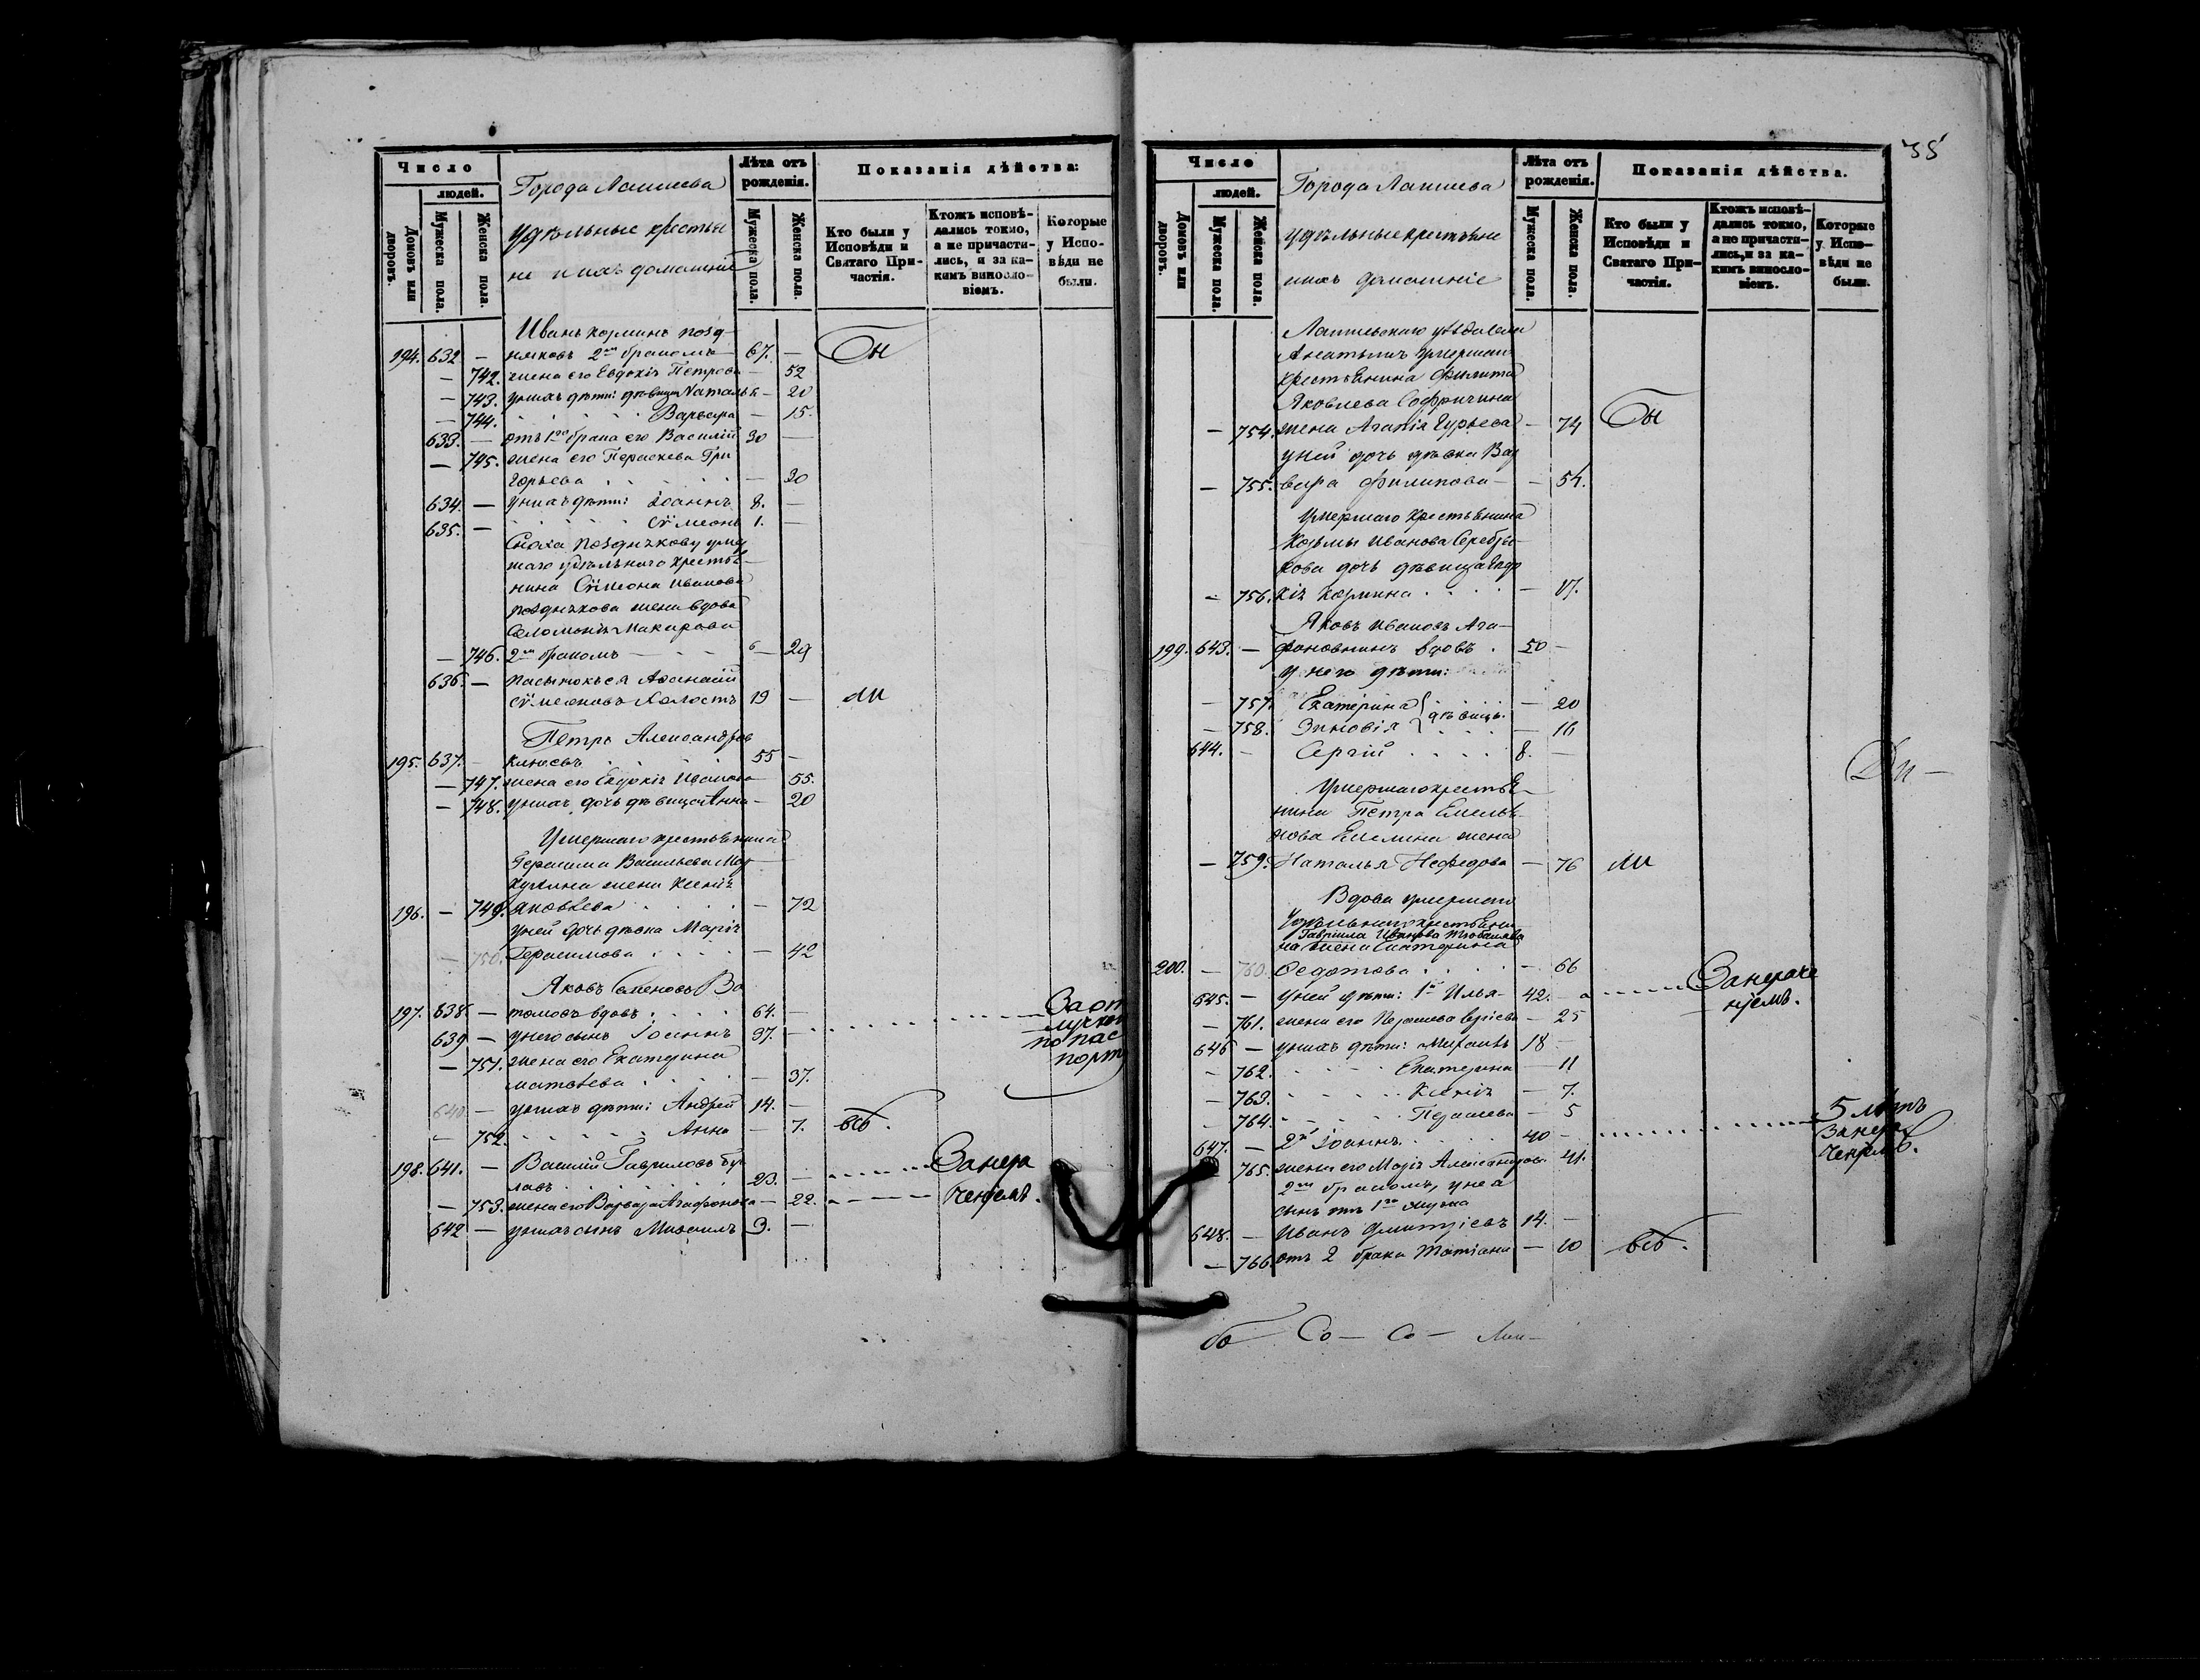 Число
людей.
Домовъ или дворовъ.
Мужеска пола.
Женска пола.
Города Лаишева
удѣльные крестья
не и ихъ домашніе
Лѣта отъ рожденія.
Мужеска пола.
Женска пола.
Показанія дѣйства:
Кто были у Исповѣди и Святаго Причастія.
Ктожъ исповѣдались токмо, а не причастились, и за какимъ винословіемъ.
Которые у Исповѣди не были.
Иванъ Козминъ Позд
194. 632 — няковъ 2мъ бракомъ — 67. — Бы
— 742. жена его Евдокія Петрова — 52
— 743. у нихъ дѣти: дѣвица Наталья — 20
— 744. Варвара — 15.
633. — отъ 1го брака его Василій 30 —
— 745. жена его Параскева Гри
горьева — 30
634. — у нихъ дѣти: Іоаннъ 8. —
635. — Сѵмеонъ 1. —
Сноха Позднякову умер
шаго удѣльнаго крестья
нина Сѵмеона Иванова
Позднякова жена вдова
Соломонія Макарова
— 746. 2мъ бракомъ — 29
636. — пасынокъ ея Аѳанасій
Сѵмеоновъ холостъ 19 — ли
Петръ Александровъ
195. 637. — Клюевъ 55 —
— 747. жена его Евдокія Иванова — 55.
— 748. у нихъ дочь дѣвица Анна — 20
Умершаго крестьянина
Герасима Васильева Мар
кушина жена Ксенія
196. — 749. Яковлева — 72
у ней дочь дѣвка Марія
— 750. Герасимова — 42
Яковъ Семеновъ Во
197. 638. — вдовъ 64. — За от
639 — у него сынъ Іоаннъ 37. — лучкою
— 751. жена его Екатерина по пас
Матвѣева — 37. порту
640 — у нихъ дѣти: Андрей 14. —
— 752. Анна — 7. всѣ.
198. 641. — Василій Гавриловъ Бу
лавъ 23. — За нера
— 753. жена его Варвара Агафонова — 22. ченіемъ.
642 — у нихъ сынъ Михаилъ 3. —
35
Число
людей.
Домовъ или дворовъ.
Мужеска пола.
Женска пола.
Города Лаишева
удѣльные крестьяне
и ихъ домашніе
Лѣта отъ рожденія.
Мужеска пола.
Женска пола.
Показанія дѣйства.
Кто были у Исповѣди и Святаго Причастія.
Ктожъ исповѣдались токмо, а не причастились, и за какимъ винословіемъ.
Которые у Исповѣди не были.
Лаишевскаго уѣзда села
умершаго
крестьянина Филипа
Яковлева
— 754. жена Агапія Гурьева — 74 Бы
у ней дочь дѣвка Вар
— 755. вара Филипова — 54.
Умершаго крестьянина
Козьмы Иванова Серебря
кова дочь дѣвица Евдо
— 756. кія Козмина — 17.
Яковъ Ивановъ Ага
199. 643. — фоновнинъ вдовъ 50 —
у него дѣти:
— 757. Екатерина — 20
— 758. Зиновія дѣвицы — 16
644. — Сергій 8. — Ди —
Умершаго крестья
нина Петра Емелья
нова Емелина жена
— 759. Наталья Нефедова — 76 ли
Вдова умершаго
удѣльнаго крестьяни
Гавриила Иванова
на жена Екатерина
200. — 760. Ѳедотова — 66
645. — у ней дѣти: 1й Илья 42. — За нераче
— 761. жена его — 25 ніемъ.
646 — у нихъ дѣти: 18 —
— 762. Екатерина — 11
— 763. Ксенія — 7.
— 764. — 5
647. — 2й Іоаннъ 40 — 5 лѣтъ
— 765. жена его Марія Александрова 41. За нера
2мъ бракомъ, у нея ченіемъ.
сынъ отъ 1го мужа
648. — Иванъ Дмитріевъ 14. —
— 766. отъ 2 брака Татіана — 10 всѣ.
бо Со — Со — Ли —